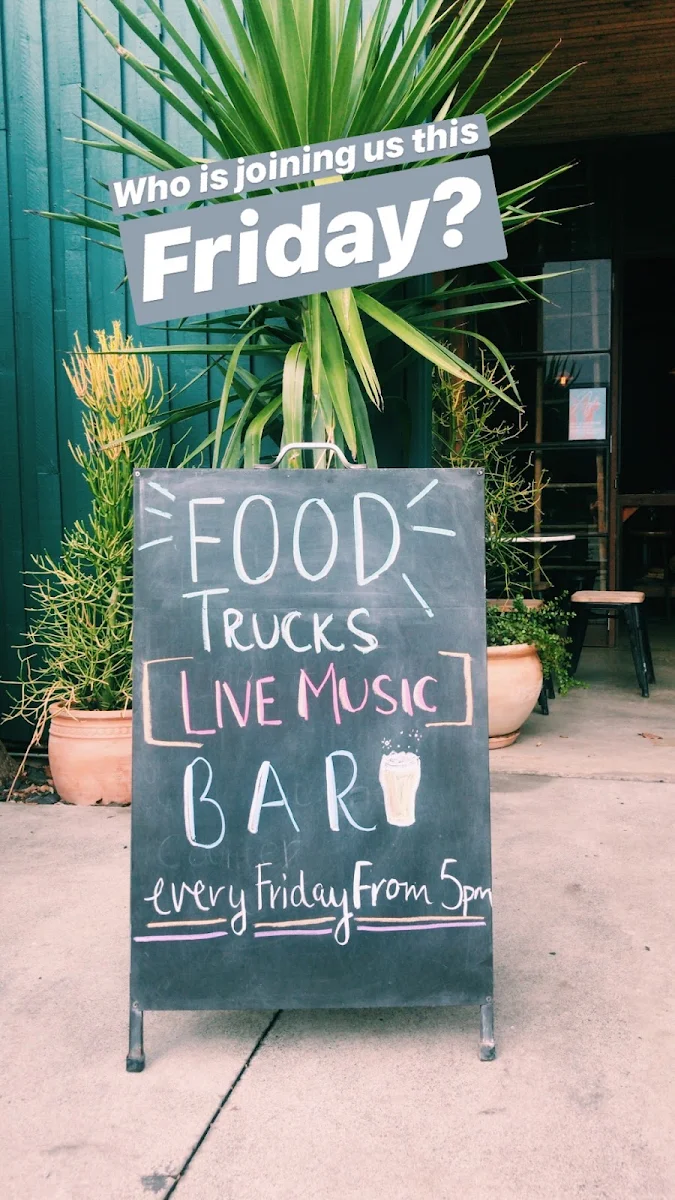 Who is joining us this
Friday?
FOOD
TRUCKS
[LIVE MUSIC]
BAR
every Friday From 5pm